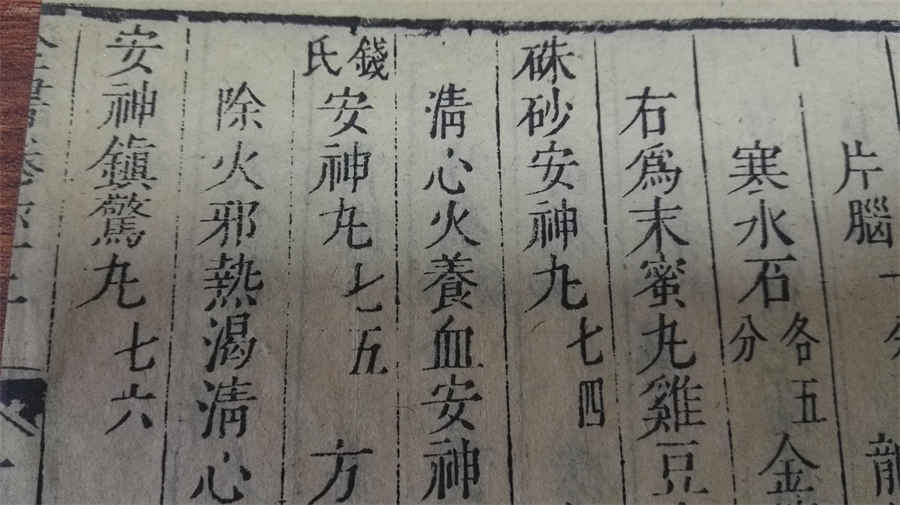 片腦一
寒水石各五分金
右爲末蜜丸雞豆
硃砂安神丸七四
清心火養血安神
錢氏安神丸七五方
除火邪熱渴清心
安神鎮驚丸七六